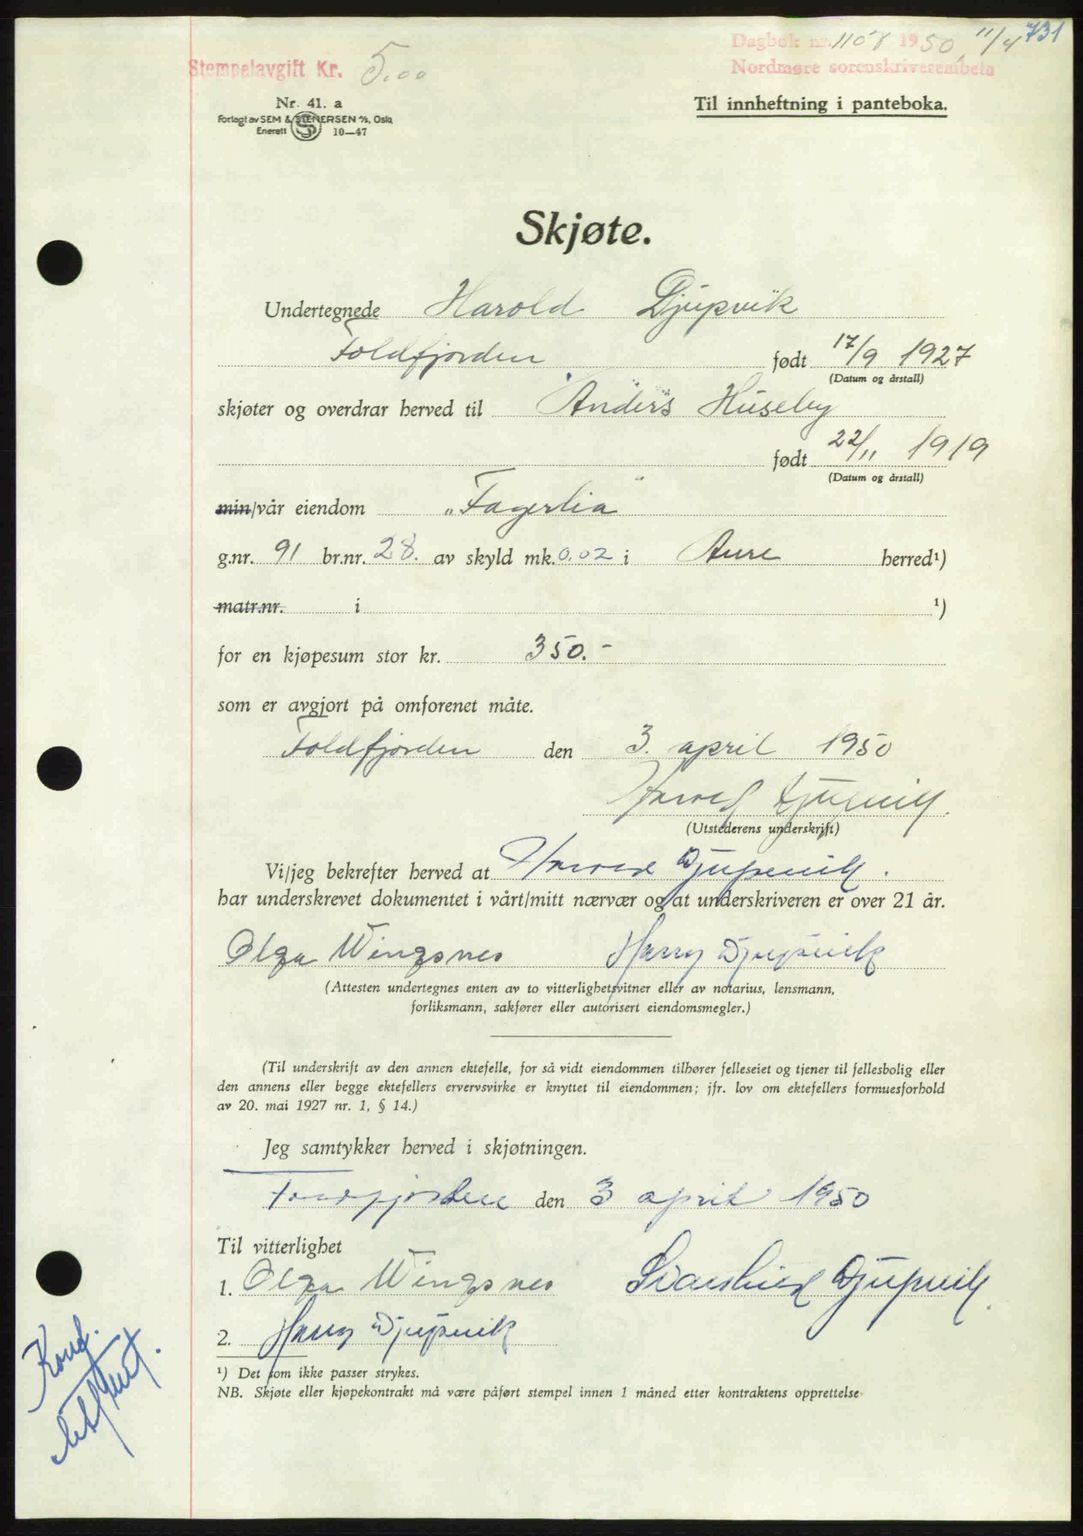 731
Dagbok nr. 1108 1950, 11/4
Stempelavgift Kr. 5.00
Nordmøre sorenskriverembete
Nr. 41. a
Til innheftning i panteboka.
Forlagt av SEM & STENERSEN A/S, Oslo
Enerett S 10—47
Skjøte.
Undertegnede Harold Djupvik
Foldfjorden født 17/9 1927
(Datum og årstall)
skjøter og overdrar herved til Anders Huseby
født 22/11 1919
(Datum og årstall)
min/vår eiendom "Fagerlia"
g.nr. 91 br.nr. 28. av skyld mk. 0.02 i Aure herred¹)
matr.nr. i ¹)
for en kjøpesum stor kr. 350.-
som er avgjort på omforenet måte.
Foldfjorden den 3. april 1950
Harold Djupvik
(Utstederens underskrift)
Vi/jeg bekrefter herved at Harold Djupvik.
har underskrevet dokumentet i vårt/mitt nærvær og at underskriveren er over 21 år.
Olga Wingsnes Harry Djupvik
(Attesten undertegnes enten av to vitterlighetsvitner eller av notarius, lensmann,
forliksmann, sakfører eller autorisert eiendomsmegler.)
(Til underskrift av den annen ektefelle, for så vidt eiendommen tilhører felleseiet og tjener til fellesbolig eller
den annens eller begge ektefellers ervervsvirke er knyttet til eiendommen; jfr. lov om ektefellers formuesforhold
av 20. mai 1927 nr. 1, § 14.)
Jeg samtykker herved i skjøtningen.
Foldfjorden den 3 april 1950
Til vitterlighet
1. Olga Wingsnes Djupvik.
2. Harry Djupvik
¹) Det som ikke passer strykes.
NB. Skjøte eller kjøpekontrakt må være påført stempel innen 1 måned etter kontraktens opprettelse
Konf.